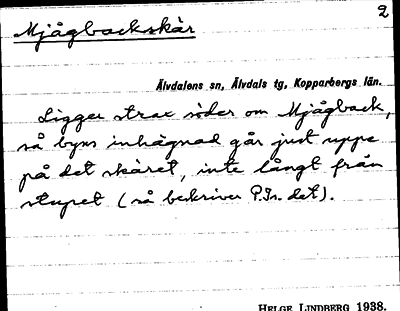 2
Mjågbackskär
Älvdalens sn, Älvdals tg, Kopparbergs län.
Ligger strax söder om Mjågback,
så byns inhägnad går just uppe
på det skäret, inte långt från
stupet (så beskriver P.Js. det).
HELGE LINDBERG 1938.